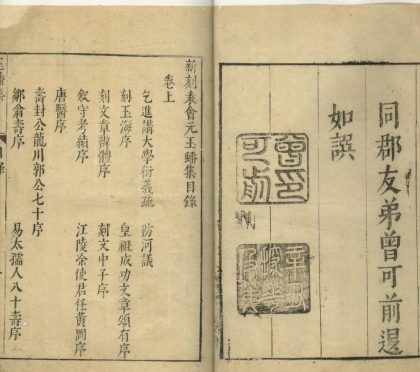 同郡友弟曾可前退
如譔
曾印
可前
新刻袁會元玉蟠集目錄
卷上
乞進講大學衍義疏 防河議
刻玉海序 皇祖成功文章頌有序
刻文章辨體序 刻文中子序
叙守考績序 江陵徐使君任黄岡序
唐醫序
壽封公龍川郭公七十序
鄒翁壽序 易太孺人八十壽序